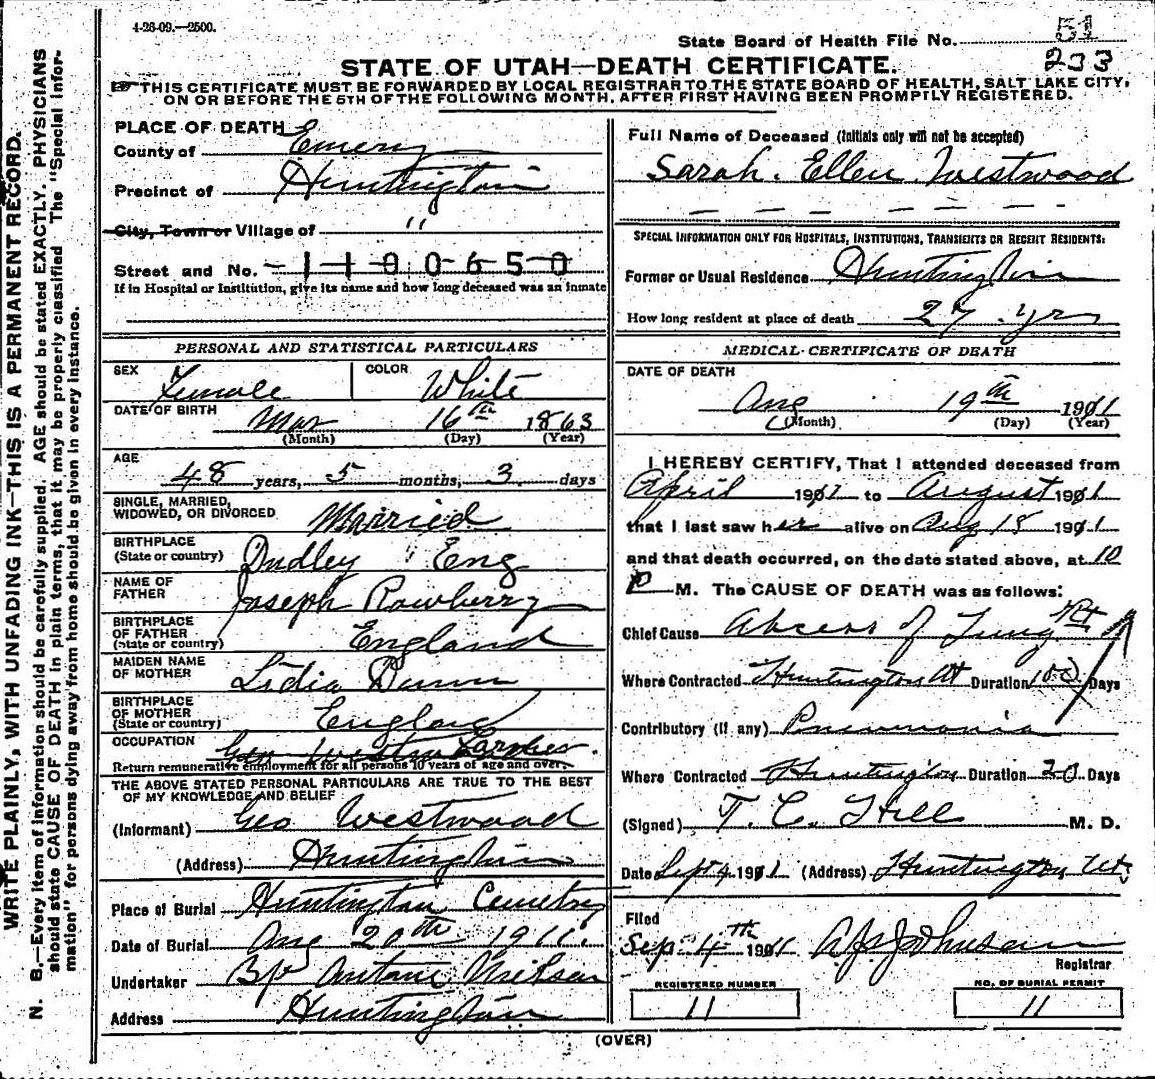 4-26-09.—2500.
51
State Board of Health File No.
233
STATE OF UTAH—DEATH CERTIFICATE.
THIS CERTIFICATE MUST BE FORWARDED BY LOCAL REGISTRAR TO THE STATE BOARD OF HEALTH, SALT LAKE CITY,
ON OR BEFORE THE 5TH OF THE FOLLOWING MONTH, AFTER FIRST HAVING BEEN PROMPTLY REGISTERED.
WRITE PLAINLY, WITH UNFADING INK—THIS IS A PERMANENT RECORD.
N. B.—Every item of information should be carefully supplied. AGE should be stated EXACTLY. PHYSICIANS
should state CAUSE OF DEATH in plain terms, that it may be properly classified The "Special Infor-
mation" for persons dying away from home should be given in every instance.
PLACE OF DEATH
County of Emery
Precinct of Huntington
City, Town or Village of "
Street and No. 1100650
If in Hospital or Institution, give its name and how long deceased was an inmate
PERSONAL AND STATISTICAL PARTICULARS
SEX Female COLOR White
DATE OF BIRTH Mar 16th 1863
(Month) (Day) (Year)
AGE
48 years, 5 months, 3 days
SINGLE, MARRIED,
WIDOWED, OR DIVORCED Married
BIRTHPLACE
(State or country) Dudley Eng
NAME OF
FATHER Joseph Rowberry
BIRTHPLACE
OF FATHER
(State or country) England
MAIDEN NAME
OF MOTHER Lidia Dunn
BIRTHPLACE
OF MOTHER
(State or country) England
OCCUPATION
Return remunerative employment for all persons 10 years of age and over.
THE ABOVE STATED PERSONAL PARTICULARS ARE TRUE TO THE BEST
OF MY KNOWLEDGE AND BELIEF
(Informant) Geo Westwood
(Address) Huntington
Place of Burial Huntington Cemetry
Date of Burial Aug 20th 1911
Undertaker
Address Huntington
Full Name of Deceased (Initials only will not be accepted)
Sarah Ellen Westwood
SPECIAL INFORMATION ONLY FOR HOSPITALS, INSTITUTIONS, TRANSIENTS OR RECENT RESIDENTS:
Former or Usual Residence Huntington
How long resident at place of death 27 yrs
MEDICAL CERTIFICATE OF DEATH
DATE OF DEATH
Aug 19th 1911
(Month) (Day) (Year)
I HEREBY CERTIFY, That I attended deceased from
April 1911 to August 1911
that I last saw her alive on Aug 18 1911
and that death occurred, on the date stated above, at 10
P M. The CAUSE OF DEATH was as follows:
Chief Cause Abcess of Lung Rt
Where Contracted Huntington Ut Duration Days
Contributory (if any) Pneumonia
Where Contracted Huntington Duration 20 Days
(Signed) T. C. Hill M. D.
Date Sept 4 1911 (Address) Huntington Ut.
Filed
Sep 4th 1911 Johnson
Registrar
REGISTERED NUMBER
11
NO. OF BURIAL PERMIT
11
(OVER)